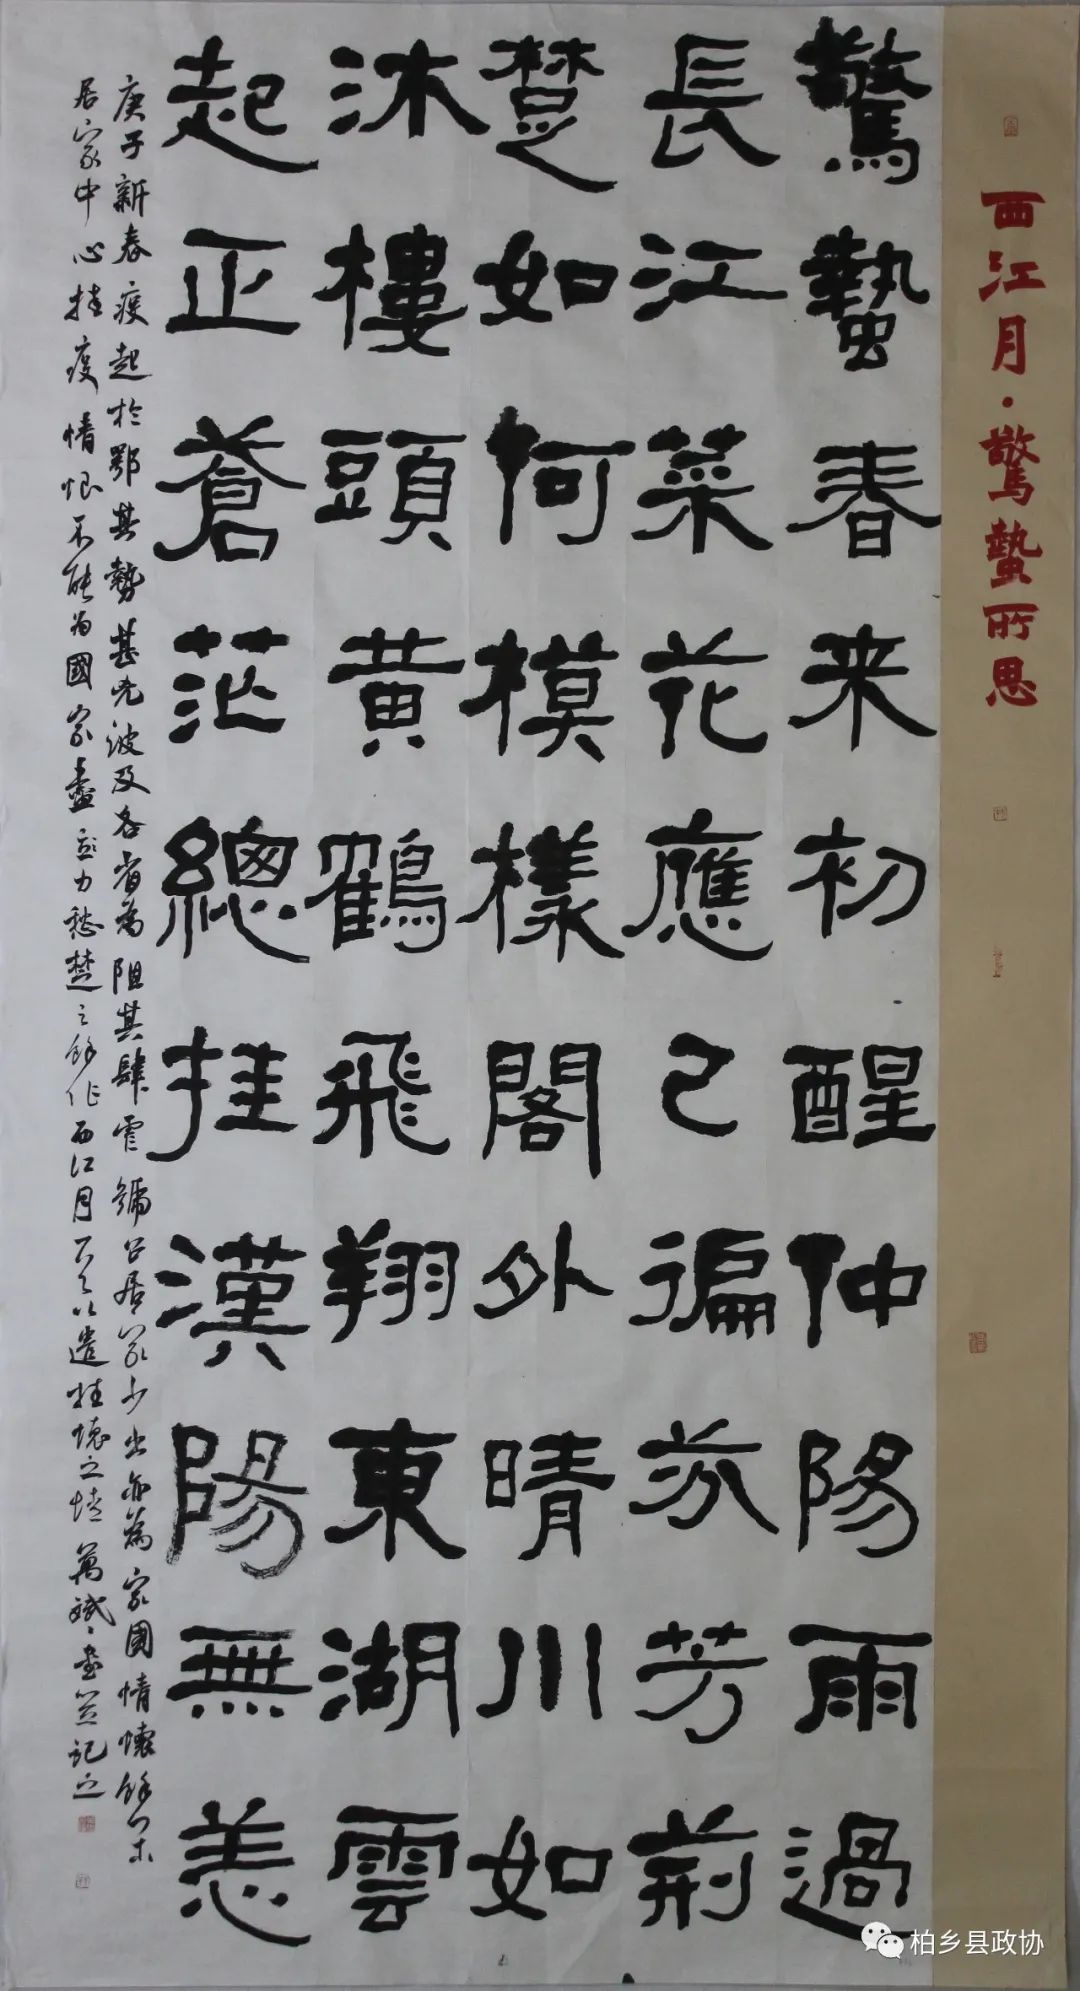 西江月·驚蟄所思
驚蟄春来初醒仲陽雨過
長江菜花應已徧芬芳荊
楚如何模樣閣外晴川如
沐樓頭黄鶴飛翔東湖雲
起正蒼茫總挂漢陽無恙
庚子新春疫起於鄂其勢甚兇波及各省為阻其肆虐號召居家少出亦為家國情懷餘
居家中心挂疫情恨不能為國家盡
力愁楚之餘作西江月一以遣挂懷之情萬斌書並記之
柏乡县政协